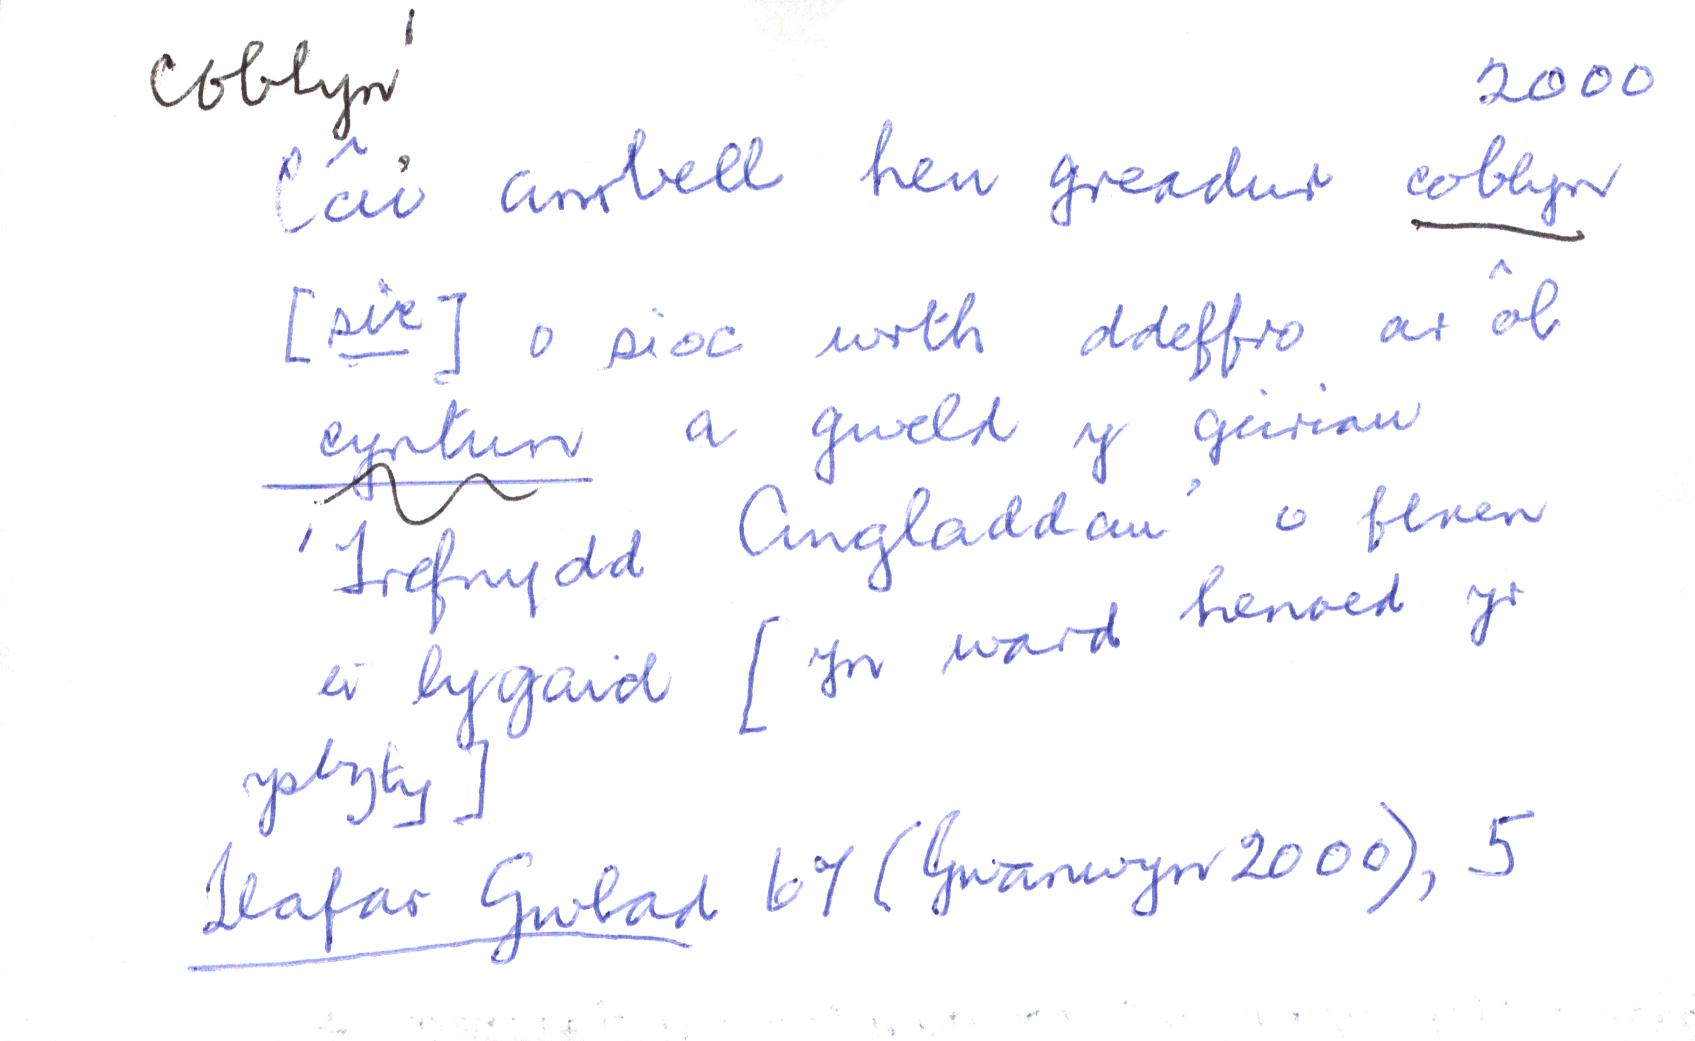 coblyn¹
2000
Câi ambell hen greadur coblyn
[sic] o sioc wrth ddeffro ar ôl
cyntun a gweld y geiriau
'Trefnydd Angladdau' o flaen
ei lygaid [yn ward henoed yr
ysbyty]
Llafar Gwlad 67 (Gwanwyn 2000), 5